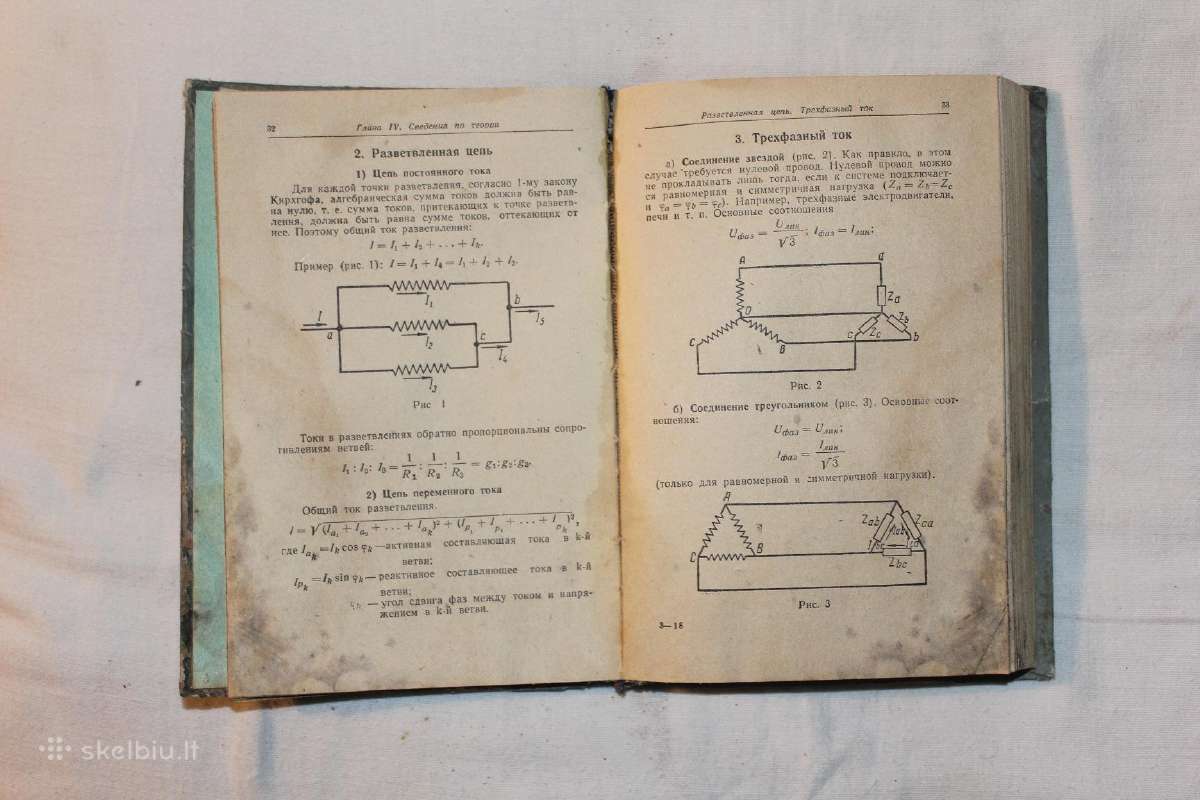 32
Глава IV. Сведения по теории
2. Разветвленная цепь
1) Цепь постоянного тока
Для каждой точки разветвления, согласно 1-му закону
Кирхгофа, алгебраическая сумма токов должна быть рав-
на нулю, т. е. сумма токов, притекающих к точке разветв-
ления, должна быть равна сумме токов, оттекающих от
нее. Поэтому общий ток разветвления:
I = I₁ + I₂ + . . . + Iₖ.
Пример (рис. 1): I = I₁ + I₄ = I₁ + I₂ + I₃.
I a I₁ b I₅
I₂ c I₄
I₃
Рис 1
Токи в разветвлениях обратно пропорциональны сопро-
тивлениям ветвей:
I₁ : I₂ : I₃ = 1/R₁ : 1/R₂ : 1/R₃ = g₁:g₂:g₃.
2) Цепь переменного тока
Общий ток разветвления.
I = √(Iₐ₁ + Iₐ₂ + . . . + Iₐₖ)² + (Iₚ₁ + Iₚ₁ + . . . + Iₚₖ)²,
где Iₐₖ = Iₖ cos φₖ — активная составляющая тока в k-й
ветви;
Iₚₖ = Iₖ sin φₖ — реактивное составляющее тока в k-й
ветви;
φₖ — угол сдвига фаз между током и напря-
жением в k-й ветви.
Разветвленная цепь. Трехфазный ток
33
3. Трехфазный ток
а) Соединение звездой (рис. 2). Как правило, в этом
случае требуется нулевой провод. Нулевой провод можно
не прокладывать лишь тогда, если к системе подключает-
ся равномерная и симметричная нагрузка (Zₐ = Z_b = Z_c
и φₐ = φ_b = φ_c). Например, трехфазные электродвигатели,
печи и т. п. Основные соотношения
U фаз = U лин/√3 ; I фаз = I лин;
A a
Zₐ
O
C B c Z_c Z_b b
Рис. 2
б) Соединение треугольником (рис. 3). Основные соот-
ношения:
U фаз = U лин;
I фаз = I лин/√3
(только для равномерной и симметричной нагрузки).
A
Z_ab Z_ca
C B
Z_bc
Рис. 3
3—18
skelbiu.lt